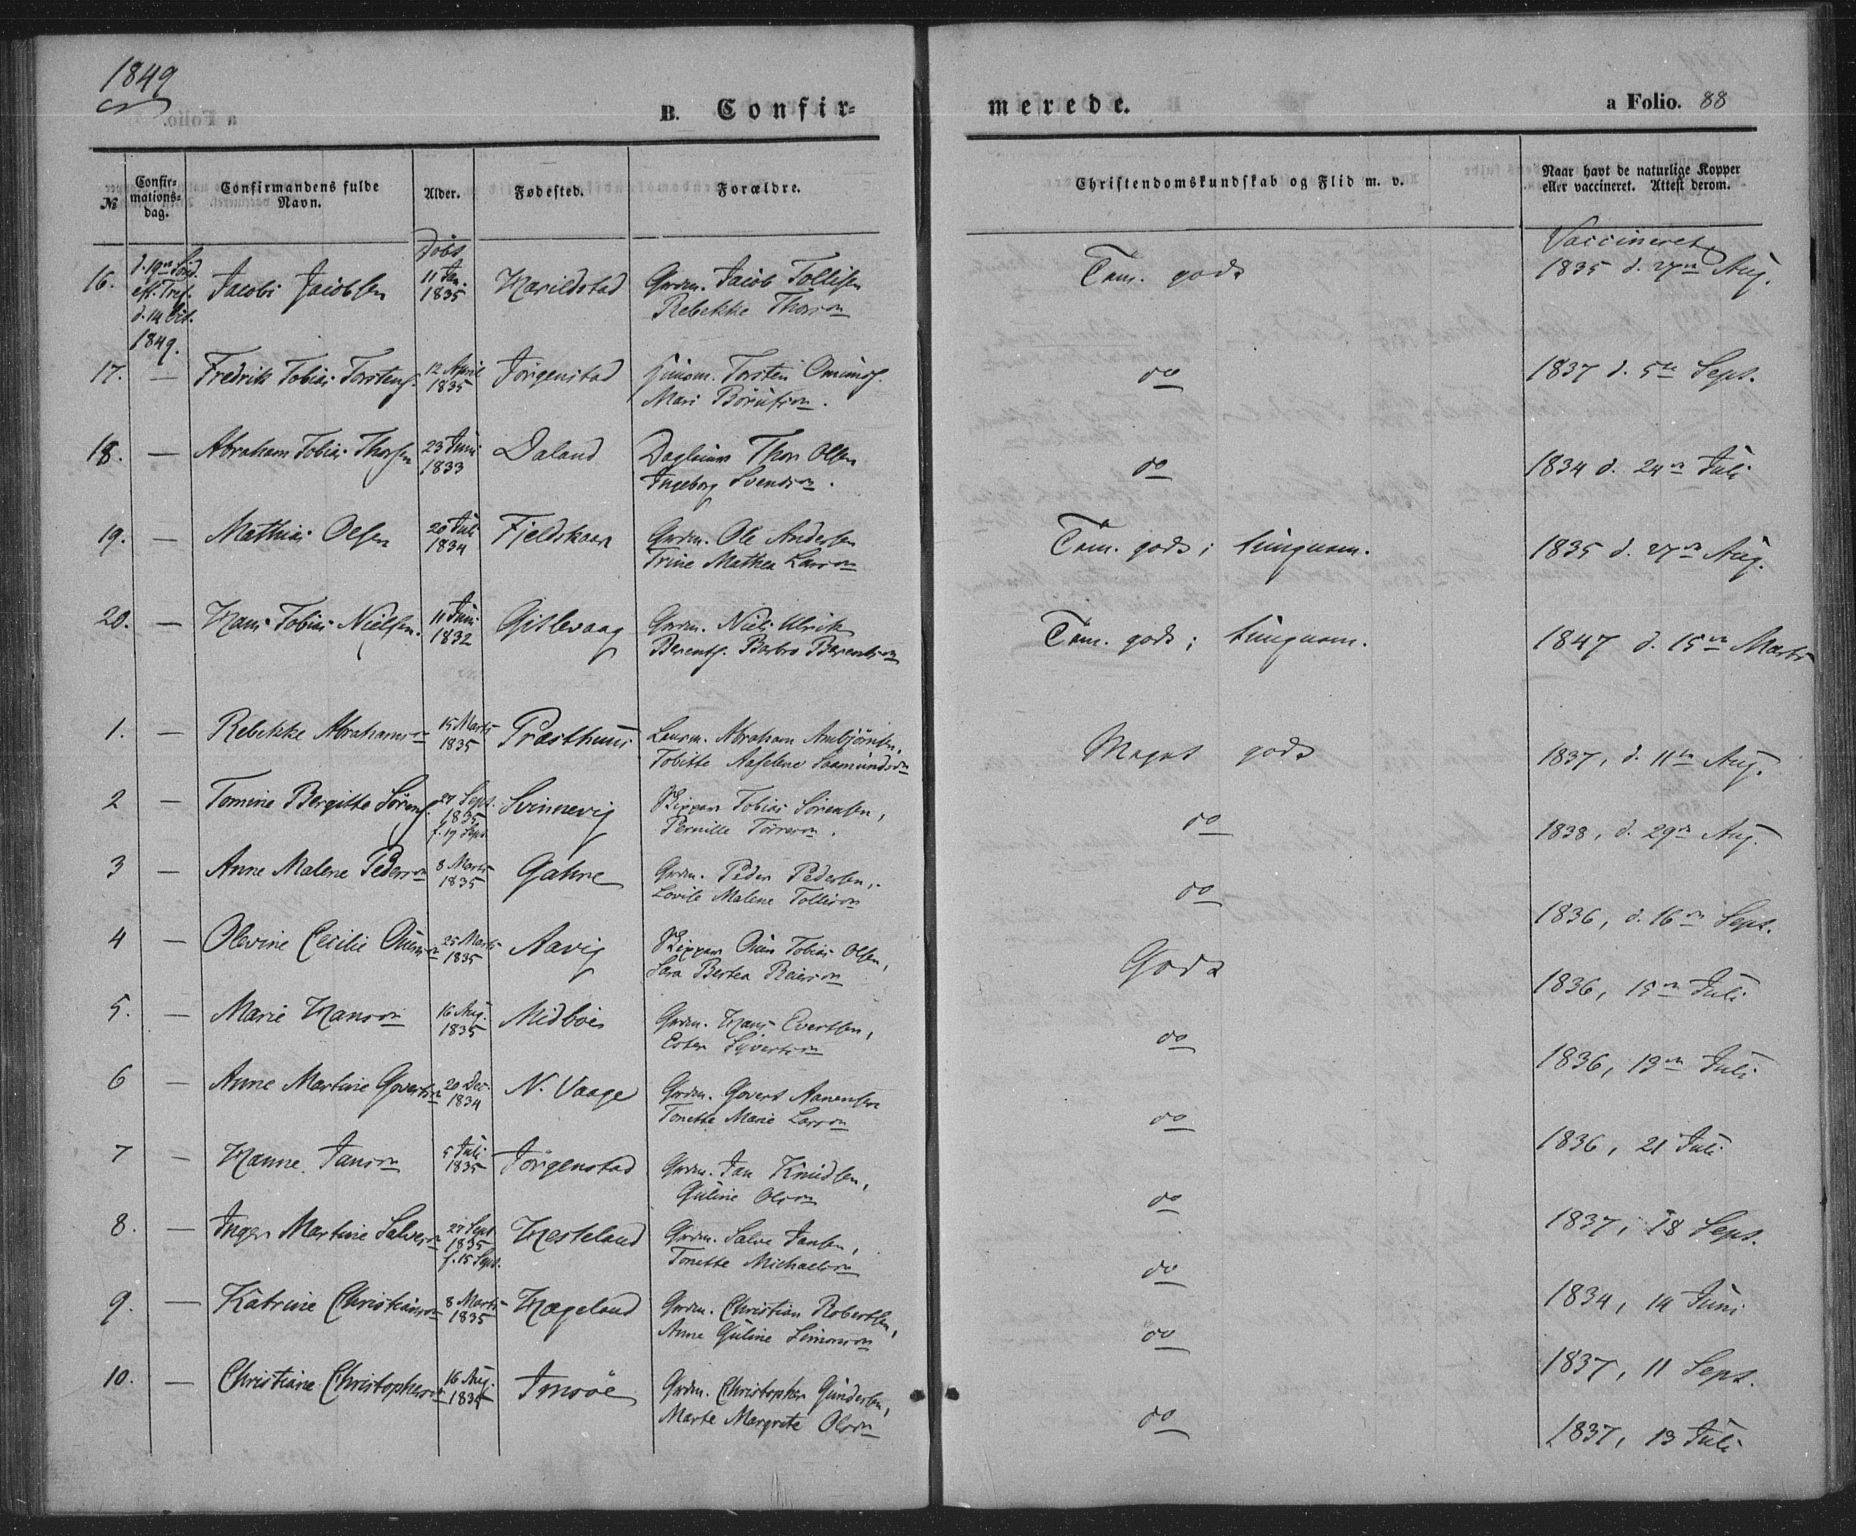 1849
B. Confir-
merede.
a Folio. 88
№
Confir-
mations-
dag.
Confirmandens fulde
Navn.
Alder.
Fødested.
Forældre.
Christendomskundskab og Flid m. v.
Naar havt de naturlige Kopper
eller vaccineret. Attest derom.
16.
d. 19de Sönd.
eft. Tref.
d. 14 Oct.
1849.
Jacob Jacobsen
Döbt
11 Jan.
1835
Harildstad
Grdm. Jacob Tollisen
Rebekke Thorsdn
Tem. god
Vaccineret
1835 d. 27de Aug.
17. — Fredrik Tobias Torstens.
12 April
1835
Jörgenstad
Torsten
Mari
do
1837 d. 5te Sept.
18. — Abraham Tobias Thorsen
23 Juni
1833
Daland
Thor Olsen
Ingeborg Svensdn.
do
1834 d. 24de Juli
19. — Mathias Olsen
20 Juli
1834
Fjeldskaar
Grdm. Ole Andersen
Trine Mathea Larsdn
Tem. god; tungnem.
1835 d. 27de Aug.
20. — Hans Tobias Nielsen.
11 Juni
1832
Gislevaag
Grdm. Niels Ulrik
Berents. Barbro Berentsdn
Tem. god; tungnem.
1847 d. 15de Marts
1. — Rebekke Abrahamsdn
15 Marts
1835
Præsthuus
Abraham Anbjörnsen,
Tobitte Aaselene Saamundsdn
Meget god
1837, d. 11te Aug.
2 — Tomine Bergitte Sörens.
27 Sept.
1835
f. 19 Sept.
Svinnevig
Skipper Tobias Sörensen,
Pernille Torresdn.
do
1838, d. 29de Aug.
3 — Anne Malene Pedersdn
8 Marts
1835
Gahre
Grdm. Peder Pedersen,
Lovise Malene Tollisdn
do
1836, d. 16de Sept.
4 — Olevine Cecilie Ouensdn
25 Marts
1835
Aavig
Skipper Ouen Tobias Olsen,
Sara Bertea Reiersdn
God
1836, 15de Juli
5. — Marie Hansdn
16 Aug.
1835
Midböe
Grdm. Hans Evertsen,
Ester Syvertsdn
do
1836, 13de Juli
6 — Anne Martine Govertsdn
20 Dec.
1834
N. Vaage
Grdm. Govert Aanensen
Tonette Marie Larsdn
do
1836, 21 Juli
7 — Hanne Jansdn
5 Juli
1835
Jörgenstad
Grdm. Jan Knudsen,
Guline Olsdn
do
1837, 18 Sept.
8. — Inger Martine Salvesdn
27 Sept
1835
f. 15 Sept.
Hesteland
Grdm. Salve Jansen,
Tonette Michaelsdn
do
1834, 14 Juni
9. — Katrine Christiansdn
8 Marts
1835
Hægeland
Grdm. Christian Robertsen,
Anne Guline Simonsdn
do
1837, 11 Sept.
10. — Christiane Christophersdn
16 Aug.
1834
Imsöe
Grdm. Christopher Gundersen,
Marte Margrete Olsdn
do
1837, 13 Juli